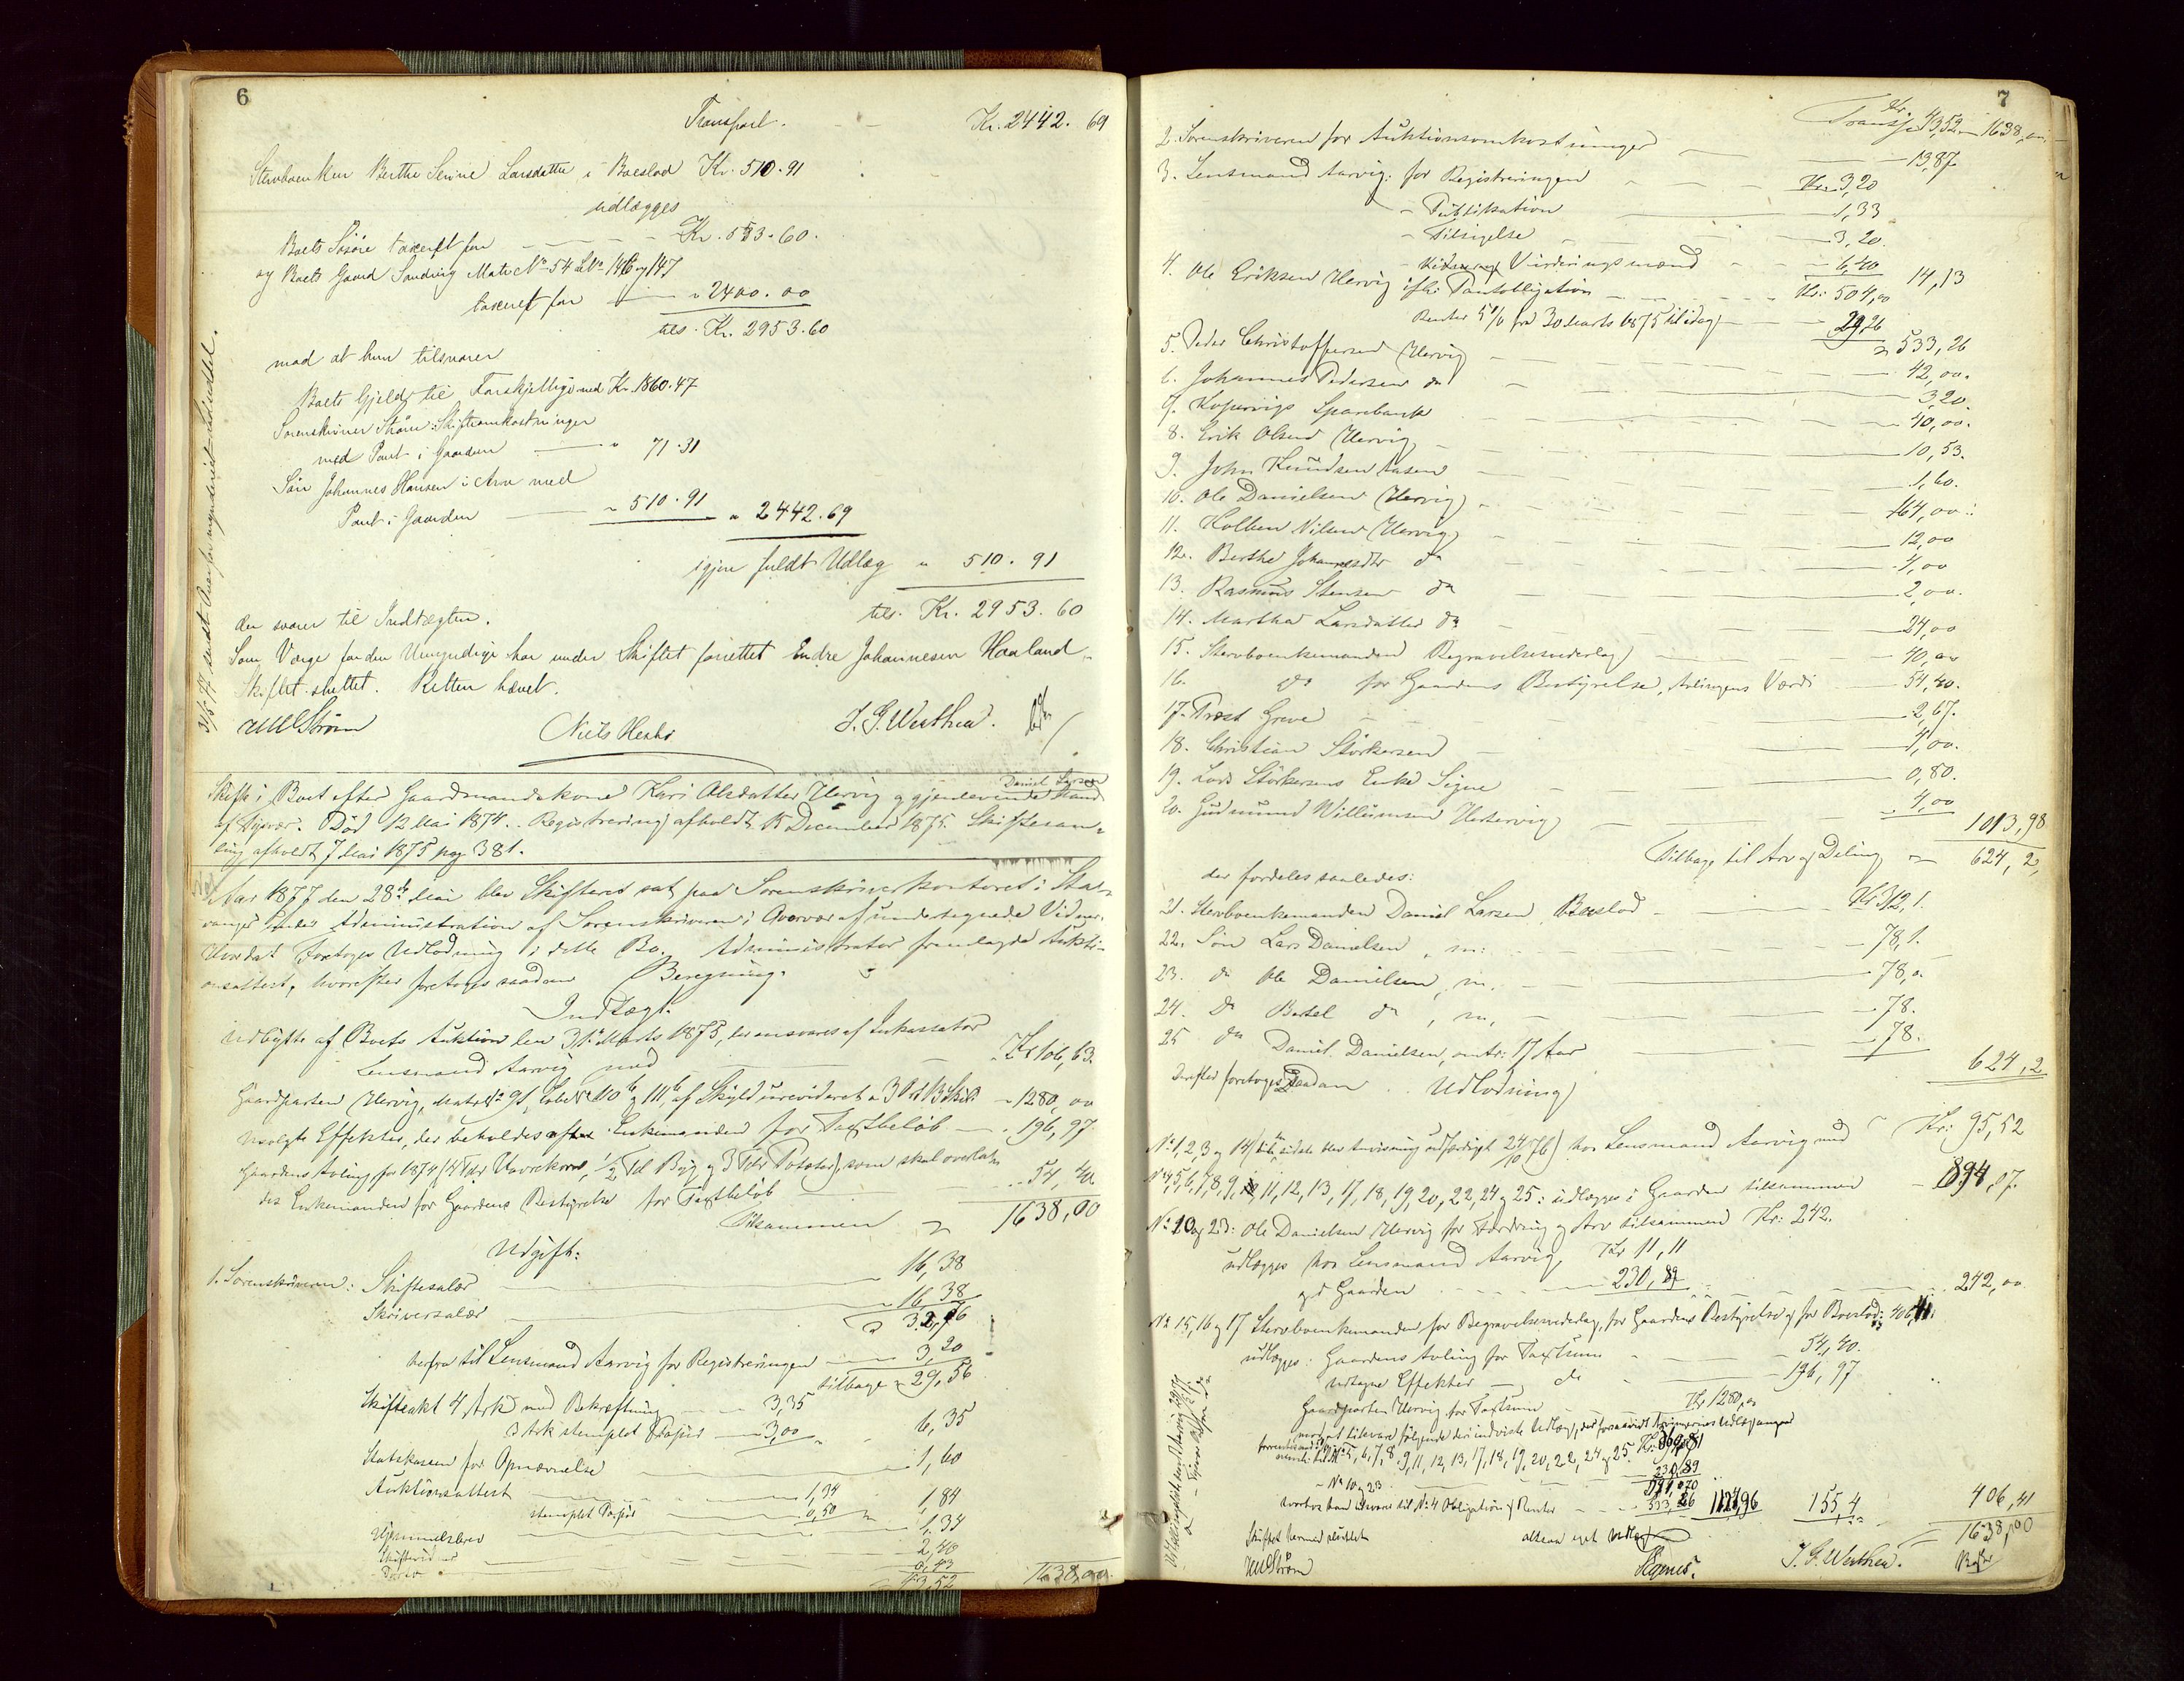 6
Transport. Kr. 2442. 69
Stervboenken Berthe Serine Larsdatter i Boeslod Kr. 510.91
udlægges
Boets Løsøre taxeret for Kr. 553.60.
og Boets Gaard Sandvig Matr No 54 LNo 146 og 147
taxeret for " 2400.00
tils. Kr. 2953.60
mod at hun tilsvarer
Boets Gjeld til Forskjellige med Kr. 1860.47
Sorenskriver Strøm: Skifteomkostninger
med Pant i Gaarden " 71.31
Søn Johannes Hansen i Arv med
Pant i Gaarden " 510.91 " 2442.69
igjen fuldt Udlæg " 510.91
tils. Kr. 2953.60
der svarer til Indtægten.
Som Værge for den Umyndige har under Skiftet forrettet Endre Johannesen Haaland.
Skiftet sluttet. Retten hævet.
Strøm Niels J. G. Werthea.
Skifte i Boet efter Gaardmandskone Kari Olsdatter Hervig og gjenlevende Mand Daniel Larsen
af Tysvær. Død 12 Mai 1874. Registrering afholdt 15 December 1875. Skiftesam-
ling afholdt 7 Mai 1875 pag 381.
Aar 1877 den 28de Mai blev Skifteret sat paa Sorenskriverkontoret i Sta-
vanger under Administration af Sorenskriveren i Overvær af undertegnede Vidner.
Hvordat foretoges Udlodning i dette Bo. Administrator fremlagde Aukti-
onsattest, hvorefter foretoges saadan Beregning.
Indtægt.
Udbytte af Boets Auktion den 31te Marts 1875, der ansvares af Inkassator
Lensmand Aarvig med Kr 106,63.
Gaardparten Hervig, Matr No 91, LobeNo 110 b og 111 b, af Skyld urevideret 3 Ort 13 Skil. " 1280,00
Usolgte Effekter, der beholdes af Enkemanden for Taxtbeløb " 196,97.
Gaardens Avling for 1874 (4 Tdr Havrekorn, 1/2 Td Byg og 3 Tdr Poteter), som skal overlades
des Enkemanden for Gaardens Bestyrelse for Taxtbeløb 54,40.
Tilsammen 1638,00
Udgift:
1. Sorenskriveren: Skiftesalær 16,38
Skriversalær " 16,38
32,76
herfra til Lensmand Aarvig for Registreringen 3,20
tilbage " 29,56
Skifteakt 4 Ark med Bekræftning 3,35
3 Ark stemplet Papir 3,00 " 6,35
Statskassen for Opnævnelse 1,60
Auktionsattest 1,34
stemplet Papir 0,50 1,84
Hjemmelsbrev 1,34
Skiftevidner 2,40
Porto 0,43
43,52 1638,00
7
Transp. Kr 43,52 1638,00
2. Sorenskriveren for Auktionsomkostninger 13,87
3. Lensmand Aarvig: for Registreringen Kr. 3,20
- Publikation 1,33
- Tilsigelse 3,20
- Vurderingsmænd 6,40 14,13
4. Ole Eriksen Hervig ifl: Pantobligation Kr: 504,00
Renter 5% fra 30 Marts 1875 til idag 29,26 " 533,26
5. Peder Christoffersen Hervig 42,00.
6. Johannes Pedersen do 3,20.
7. Kopervigs Sparebank 40,00.
8. Erik Olsen Hervig 10,53.
9. John Knudsen Aasen 1,60.
10. Ole Danielsen Hervig 164,00.
11. Kolben Nilsen Hervig 12,00
12. Berthe Johannesdtr do 4,00
13. Rasmus Stensen do 2,00.
14. Martha Larsdatter do 24,00
15. Stervboenkemanden Begravelsesvederlag 40,00
16. do for Gaardens Bestyrelse, Avlingens Værdi 54,40.
17. Præst Greve 2,67.
18. Christian Størkersen 4,00.
19. Lars Størkersens Enke Signe 0,80.
20. Gudmund Willumsen Hetervig 4,00 1013,98
Tilbage til Arv og Deling 624,2,
der fordeles saaledes:
21. Stervboenkemanden Daniel Larsen, Boeslod Kr 312,1.
22. Søn Lars Danielsen, m: 78,1.
23. do Ole Danielsen, m. 78,0
24. do Bertel do, m. 78.
25 do Daniel Danielsen, omtr: 17 Aar 78. 624,2
Derefter foretoges saadan Udlodning
No 1, 2, 3 og 14 (sidste blev Anvisning udfærdiget 24/10 76) hos Lensmand Aarvig med Kr: 95,52
No 4, 5, 6, 7, 8, 9, 11, 12, 13, 17, 18, 19, 20, 22, 24 og 25: udlægges i Gaarden tilsammen 894,07.
No 10 og 23: Ole Danielsen Hervig for Fordring og Arv tilsammen Kr: 242.
udlægges hos Lensmand Aarvig, Kr 11,11
og i Gaarden 230,89 242,00.
No 15, 16 og 17 Stervboenkemanden for Begravelsesvederlag, for Gaardens Bestyrelse og for Boeslod: 406,41.
udlægges: Gaardens Avling for Taxtsum 54,40.
Udtagne Effekter do 196,97
Gaardparten Hervig for Taxtsum Kr 1280,00
mod at tilsvare følgende deri indviste Udlæg,
nemlig til No 5, 6, 7, 8, 9, 11, 12, 13, 17, 18, 19, 20, 22, 24 og 25. Kr: 360,81
- No 10 og 23 230,89
hvorhos han overtager til No 4 Obligation og Renter 533,26 1124,96 155,4 406,41
Skiftet hermed sluttet altsaa eget Udlæg 1638,00
Strøm J. G. Werthea.